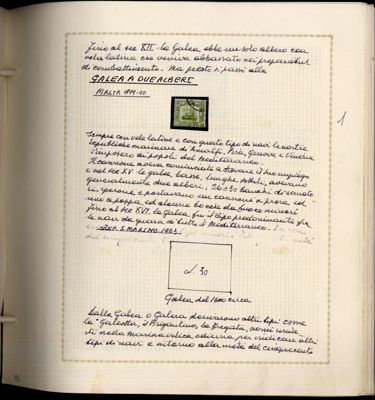 fino al sec XII - la Galea ebbe un solo albero con
vela latina che veniva abbassato nei preparativi
di combattimento. Ma presto si passò alla
GALEA A DUE ALBERI
MALTA 1899-40
1
Sempre con vele latine e con questo tipo di navi le nostre
repubbliche marinare di Amalfi, Pisa, Genova e Venezia
s'imposero ai popoli del Mediterraneo.
Il cannone aveva cominciato a trovare il suo impiego
e nel sec XV - le galee, basse, lunghe, sottili, avevano
generalmente due alberi, 26÷30 banchi di remato-
ri, sperone e portavano un cannone a prora ed
uno a poppa, ed alcune bocche da fuoco minori
fino al sec XVI. la Galea fu il tipo predominante fra
le navi da guerra di tutto il Mediterraneo.
REP. S. MARINO 1963
L. 30
Galea del 1600 circa
Dalla Galea o Galera derivarono altri tipi come
la "Galeotta, il Brigantino, la Fregata, nomi usa-
ti nella marina velica odierna per indicare altri
tipi di navi e intorno alla metà del cinquecento